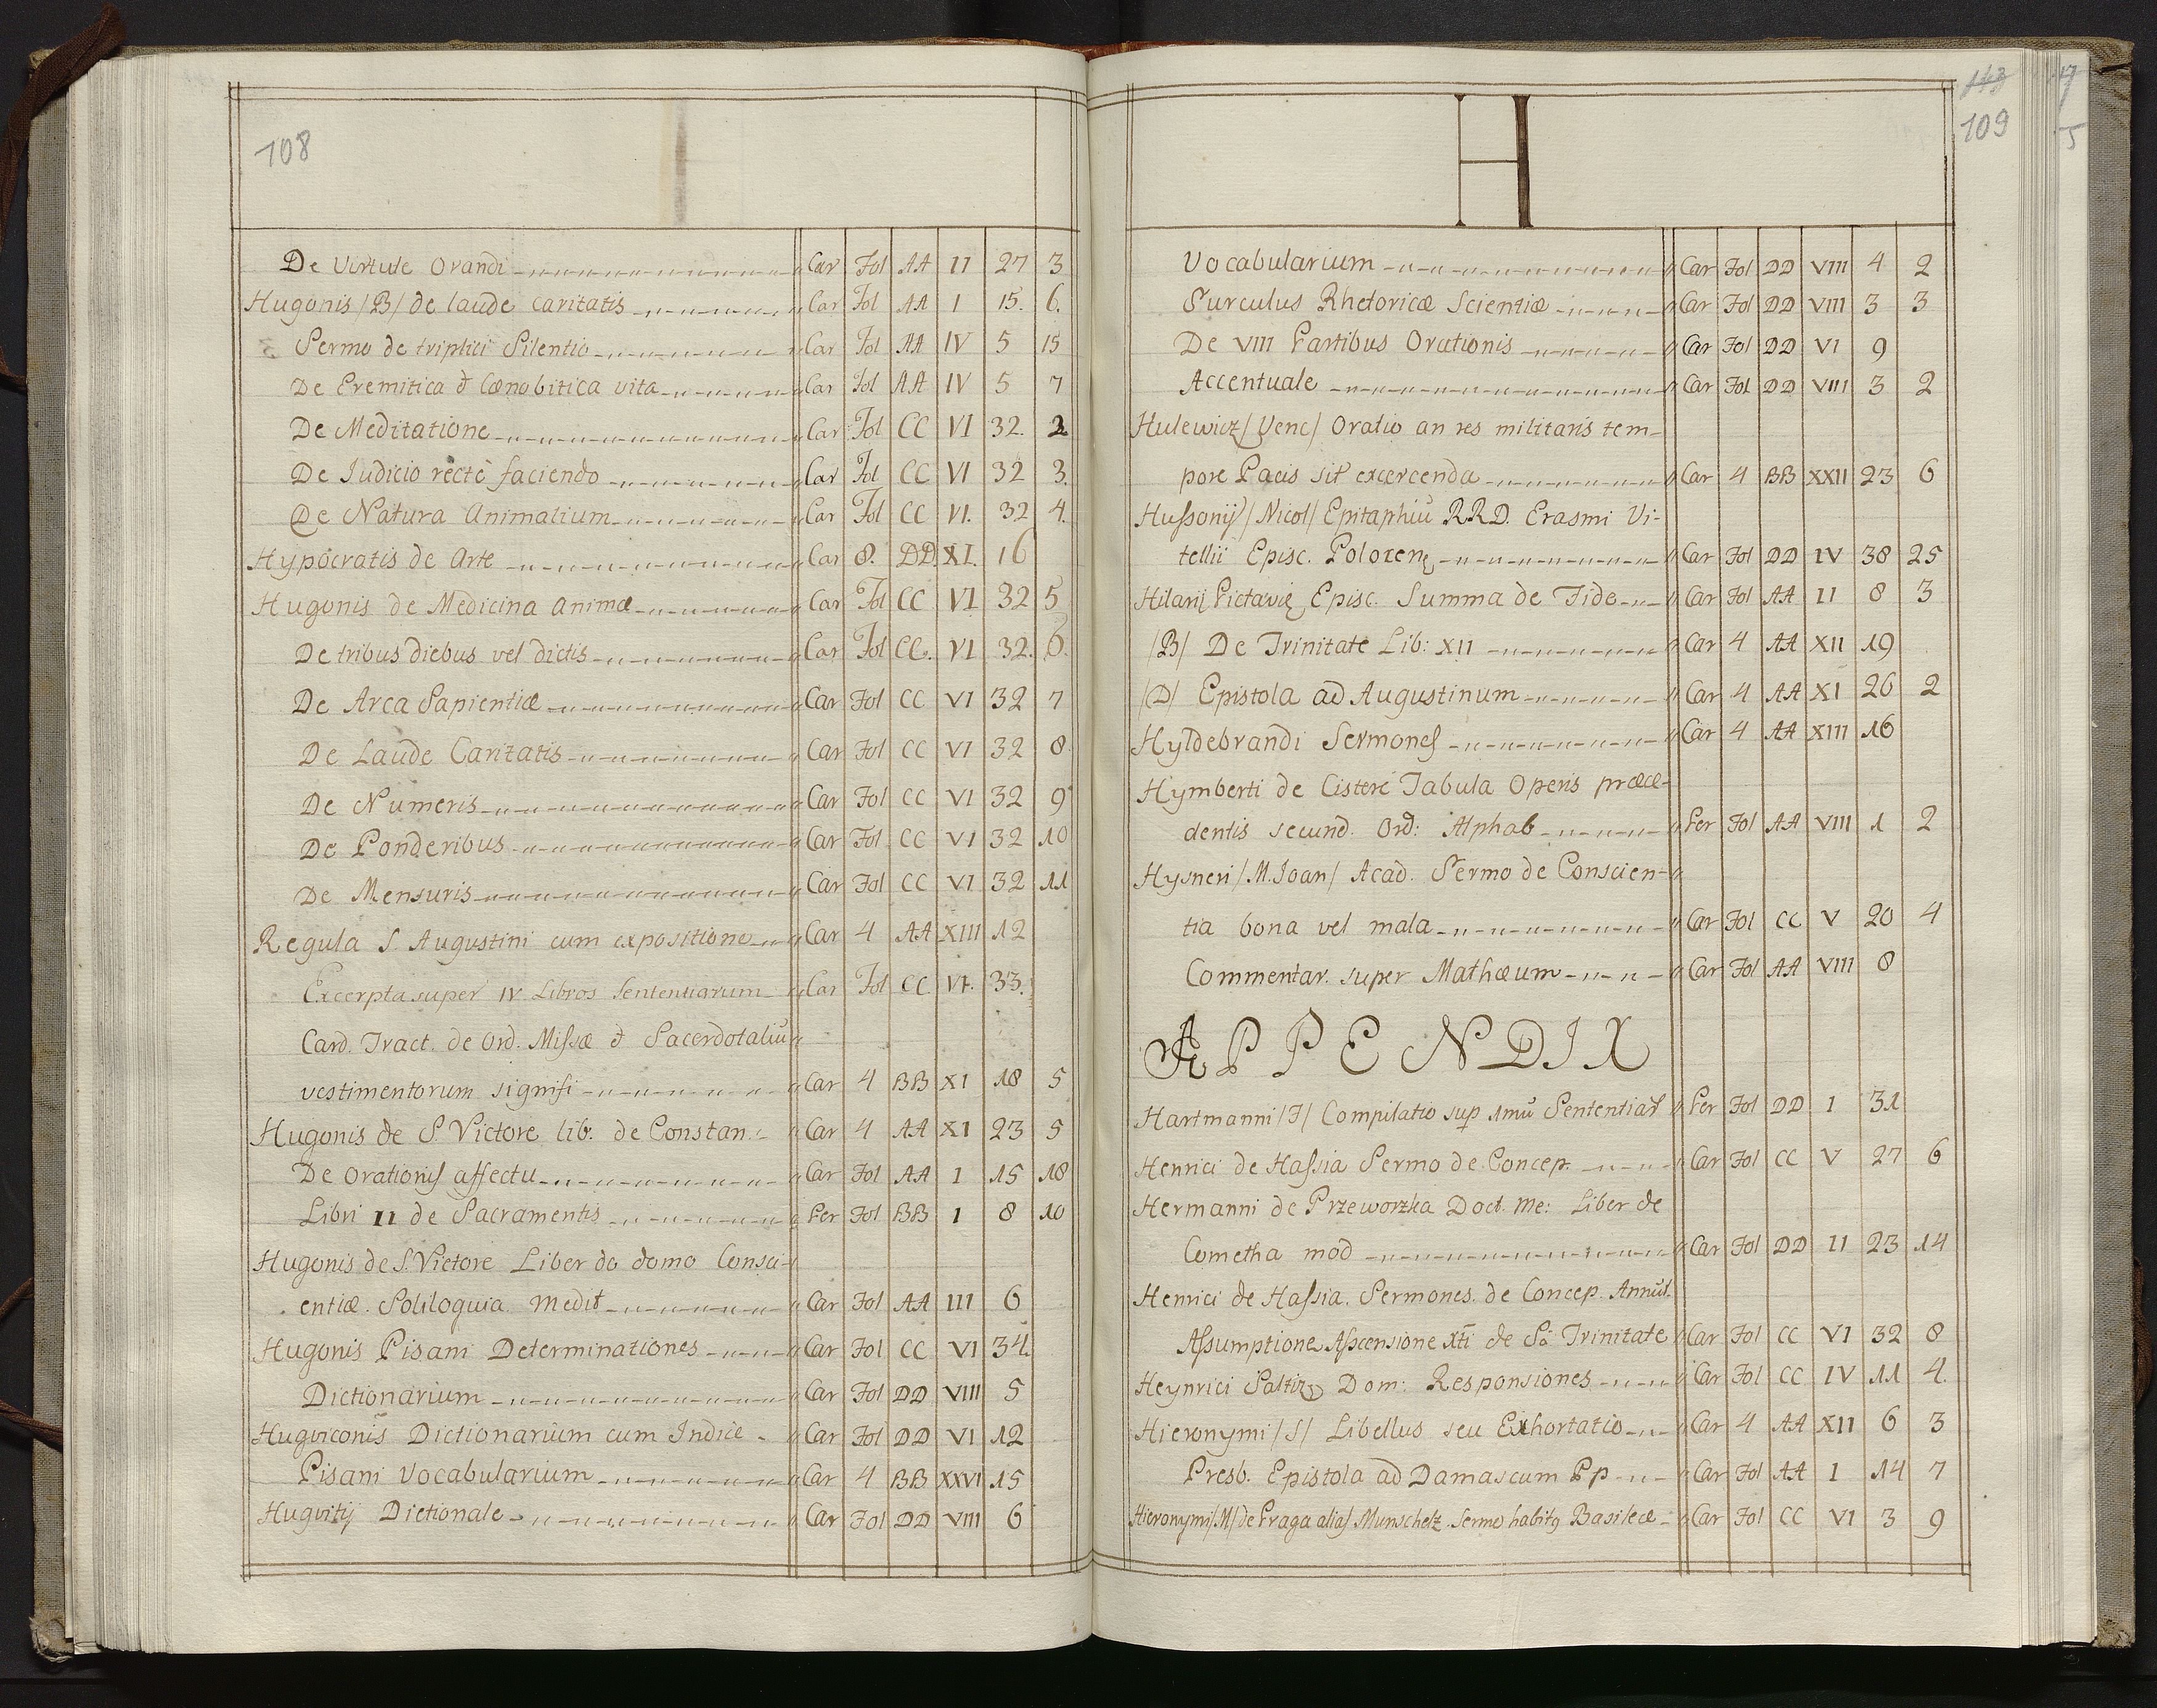 108
De Virtute Orandi Car Fol AA II 27 3
Hugonis /B/ de laude caritatis Car Fol AA I 15. 6.
Sermo de triplici Silentio Car Fol AA IV 5 15
De Eremitica & Cœnobitica vita Car Fol AA IV 5 7
De Meditatione Car Fol CC VI 32. 2
De Iudicio rectè faciendo Car Fol CC VI 32 3.
De Natura Animalium Car Fol CC VI. 32 4.
Hypocratis de Arte Car 8. DD. XI. 16
Hugonis de Medicina Animæ Car Fol CC VI 32 5
De tribus diebus vel dictis Car Fol CC. VI 32. 6.
De Arca Sapientiæ Car Fol CC VI 32 7
De Laude Caritatis Car Fol CC VI 32 8
De Numeris Car Fol CC VI 32 9
De Ponderibus Car Fol CC VI 32 10
De Mensuris Car Fol CC VI 32 11
Regula S Augustini cum expositione Car 4 AA XIII 12
Excerpta super IV Libros Sententiarum Car Fol CC VI. 33.
Card. Tract. de Ord. Missæ & Sacerdotaliū
vestimentorum signifi Car 4 BB XI 18 5
Hugonis de S. Victore lib. de Constan. Car 4 AA XI 23 5
De orationis affectu Car Fol AA I 15 18
Libri II de Sacramentis Per Fol BB I 8 10
Hugonis de S. Victore Liber do domo Consci-
entiæ. Soliloquia medit Car Fol AA III 6
Hugonis Pisani Determinationes Car Fol CC VI 34.
Dictionarium Car Fol DD VIII 5
Hugviconis Dictionarium cum Indice Car Fol DD VI 12
Pisani Vocabularium Car 4 BB XXVI 15
Hugvitij Dictionale Car Fol DD VIII 6
H
113
109
Vocabularium Car Fol DD VIII 4 2
Surculus Rhetoricæ Scientiæ Car Fol DD VIII 3 3
De VIII Partibus Orationis Car Fol DD VI 9
Accentuale Car Fol DD VIII 3 2
Hulewicz /Venc/ Oratio an res militaris tem-
pore Pacis sit exercenda Car 4 BB XXII 23 6
Hussonij /Nicol/ Epitaphiū RRD. Erasmi Vi-
tellii Episc. Polocenę Car Fol DD IV 38 25
Hilarij Pictavię Episc. Summa de Fide Car Fol AA II 8 3
/B/ De Trinitate Lib: XII Car 4 AA XII 19
/D/ Epistola ad Augustinum Car 4 AA XI 26 2
Hyldebrandi Sermones Car 4 AA XIII 16
Hymberti de Cisterc Tabula Operis præce-
dentis secund. Ord: Alphab Per Fol AA VIII 1 2
Hysneri /M. Joan/ Acad. Sermo de Conscien-
tia bona vel mala Car Fol CC V 20 4
Commentar. super Mathæum Car Fol AA VIII 8
APPENDIX
Hartmanni /F/ Compilatio sup 1mū Sententiar Per Fol DD I 31
Henrici de Hassia Sermo de Concep. Car Fol CC V 27 6
Hermanni de Przeworzka Doct. Me: Liber de
Cometha mod Car Fol DD II 23 14
Henrici de Hassia. Sermones. de Concep. Annūt.
Assumptione Ascensione Xti de Sā Trinitate Car Fol CC VI 32 8
Heynrici Dom: Responsiones Car Fol CC IV 11 4.
Hieronymi /S/ Libellus seu Exhortatio Car 4 AA XII 6 3
Presb. Epistola ad Damascum Pp Car Fol AA I 14 7
Hieronymi /M/ de Praga alias Munschetz. Sermo habitq Basileæ Car Fol CC VI 3 9